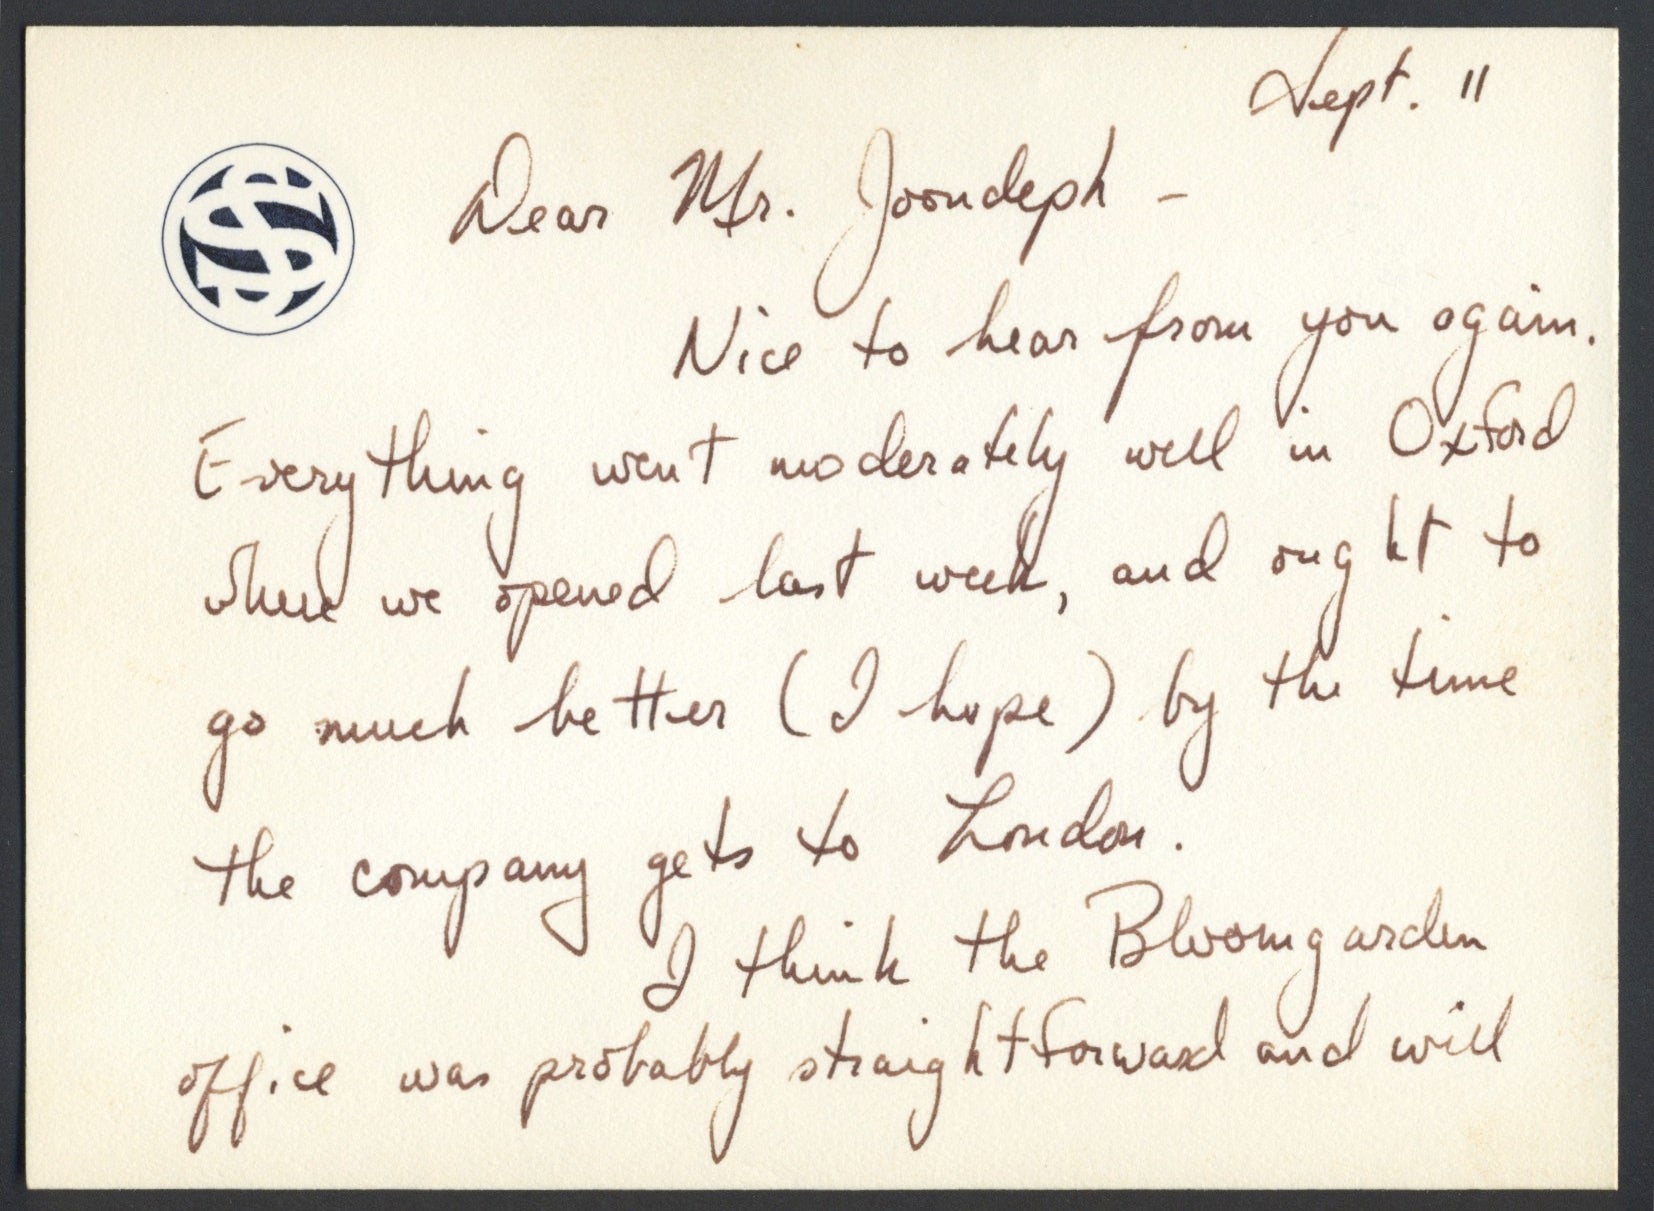 Sept. 11
Dear Mr. Joondeph -
Nice to hear from you again.
Everything went moderately well in Oxford
where we opened last week, and ought to
go much better (I hope) by the time
the company gets to London.
I think the Bloomgarden
office was probably straightforward and will